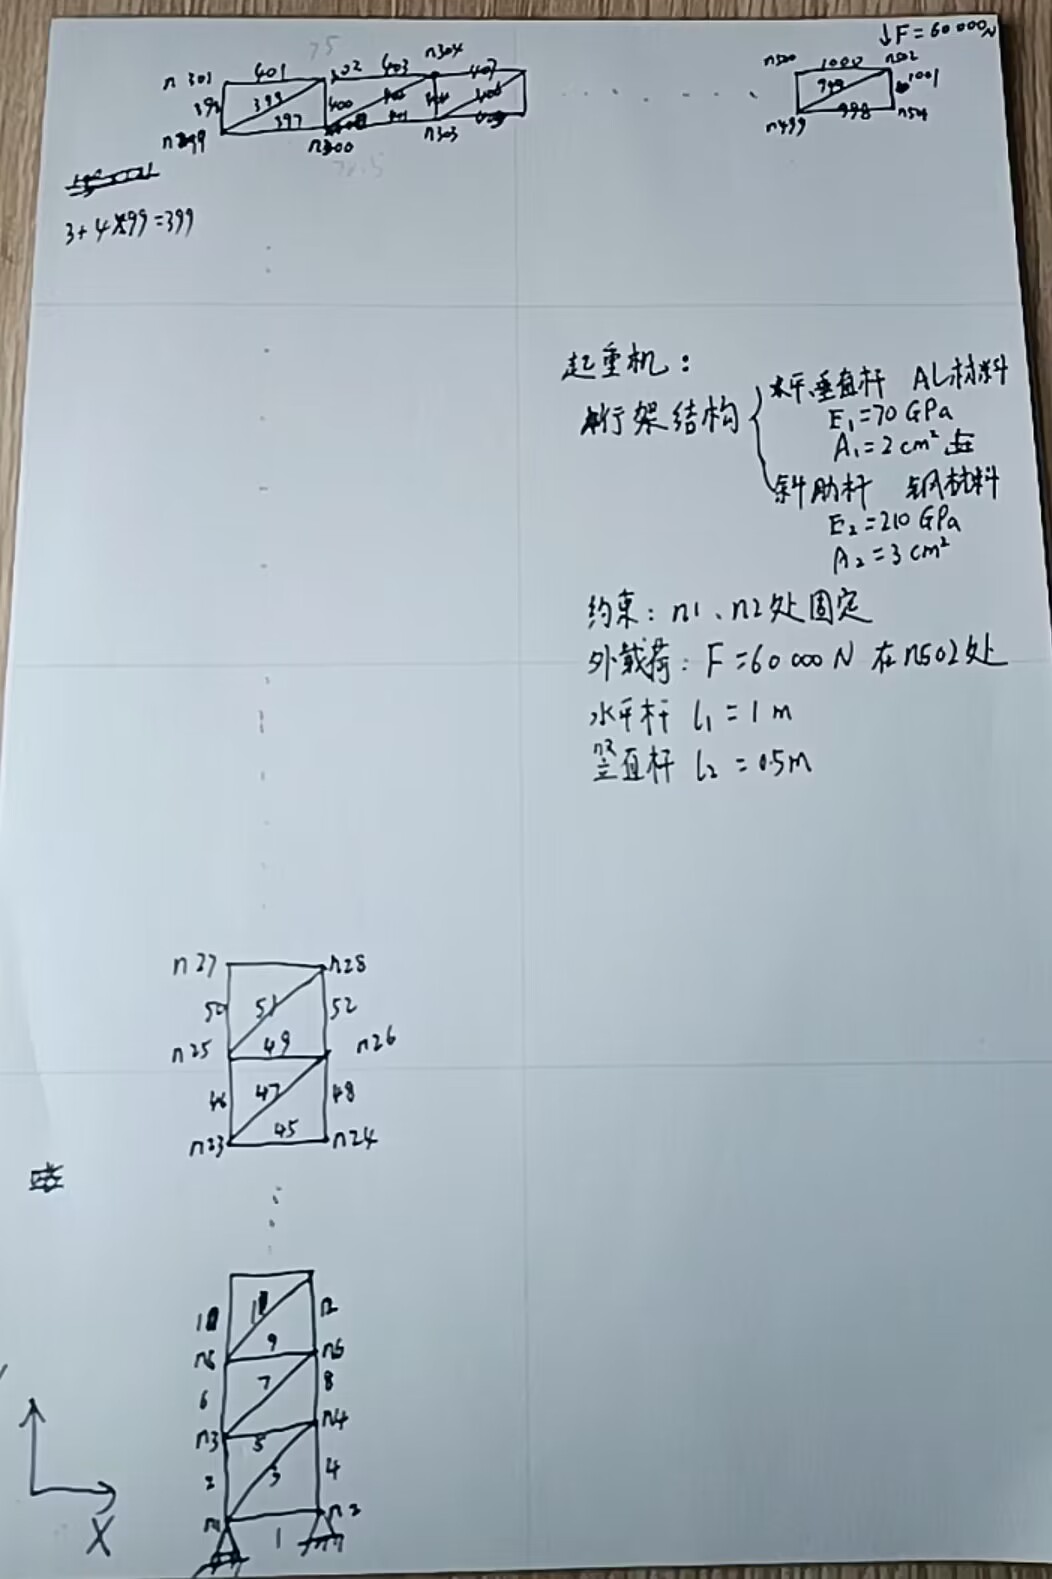 ↓F=60000N
n301 401 302 403 n304 407 n500 1000 n502
399 400 1001
397 401 998
n300 n303 n499 n501
3+4×99=399
起重机：
桁架结构
水平、垂直杆 AL材料
E₁=70 GPa
A₁=2cm²
斜肋杆 钢材料
E₂=210 GPa
A₂=3cm²
约束：n1、n2处固定
外载荷：F=60000N 在n502处
水平杆 l₁=1m
竖直杆 l₂=0.5m
n27 n28
50 51 52
n25 49 n26
46 47 48
n23 45 n24
11 12
9 n6
6 7 8
n3 5 n4
2 3 4
n1 1 n2
X